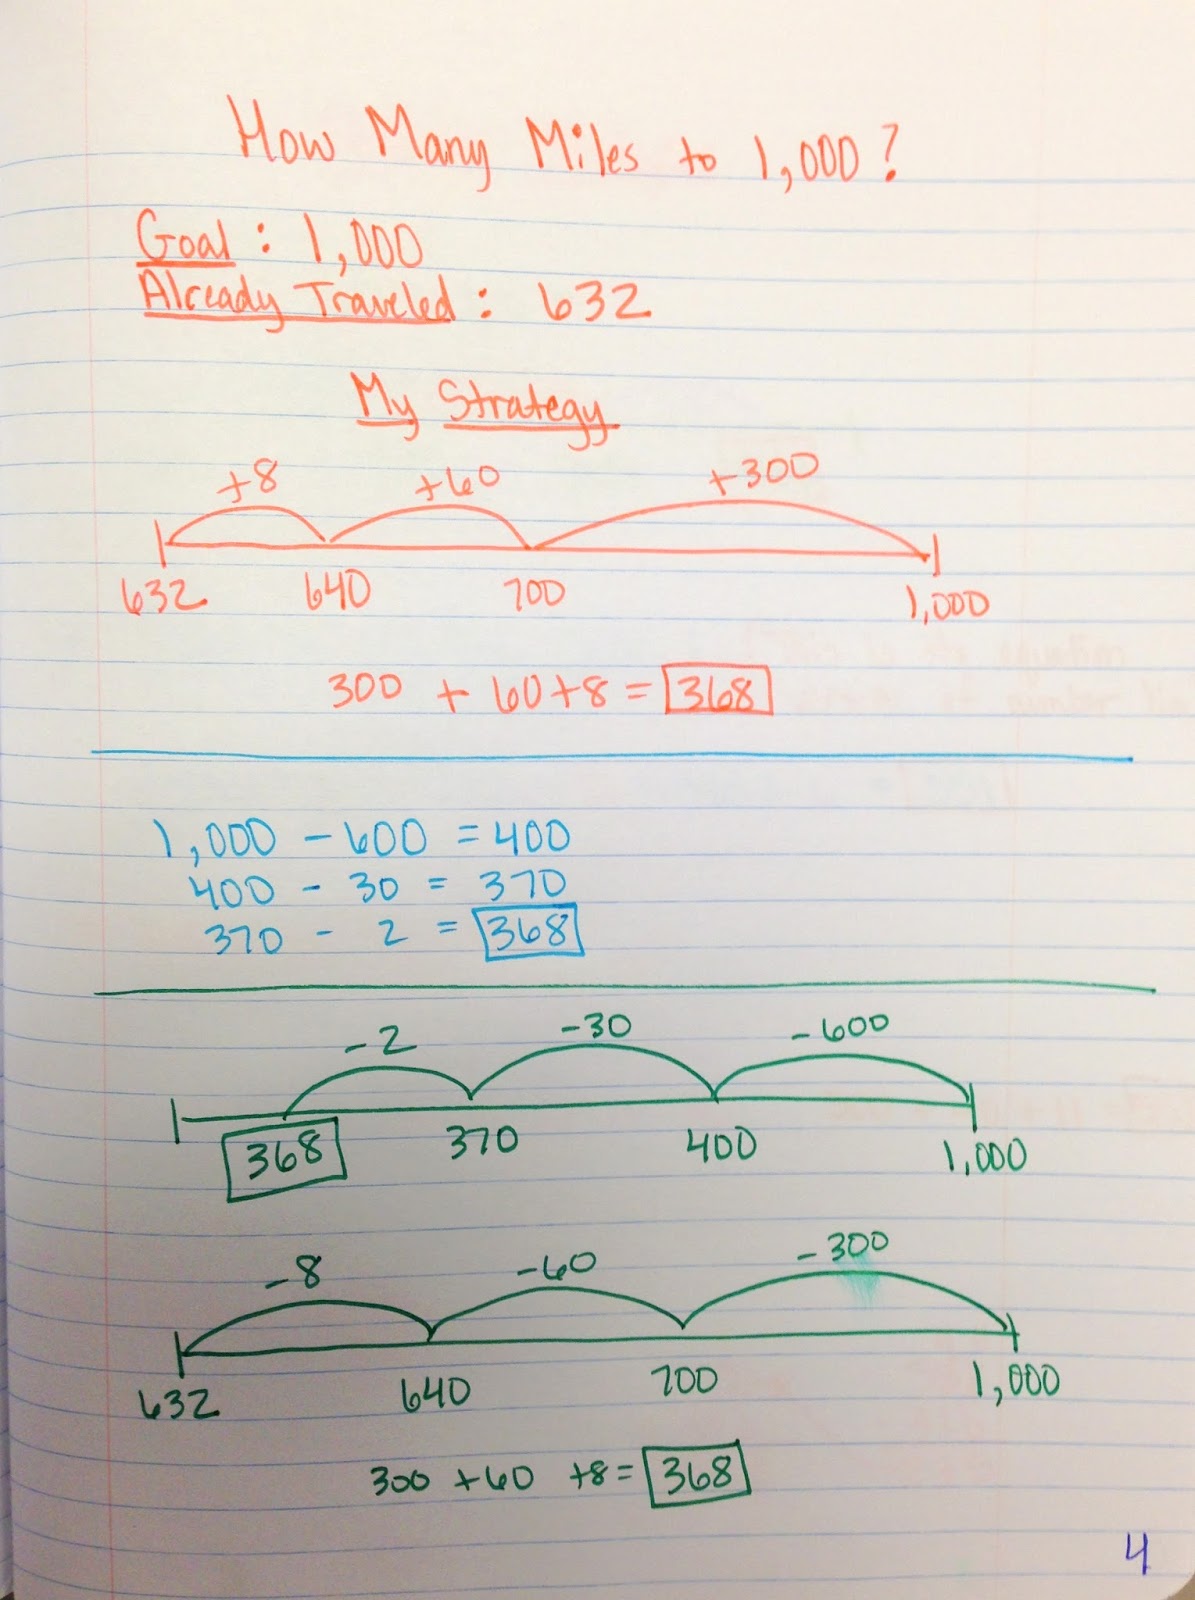 How Many Miles to 1,000?
Goal: 1,000
Already Traveled: 632
My Strategy
+8 +60 +300
632 640 700 1,000
300 + 60 + 8 = 368
1,000 - 600 = 400
400 - 30 = 370
370 - 2 = 368
-2 -30 -600
368 370 400 1,000
-8 -60 -300
632 640 700 1,000
300 + 60 + 8 = 368
4